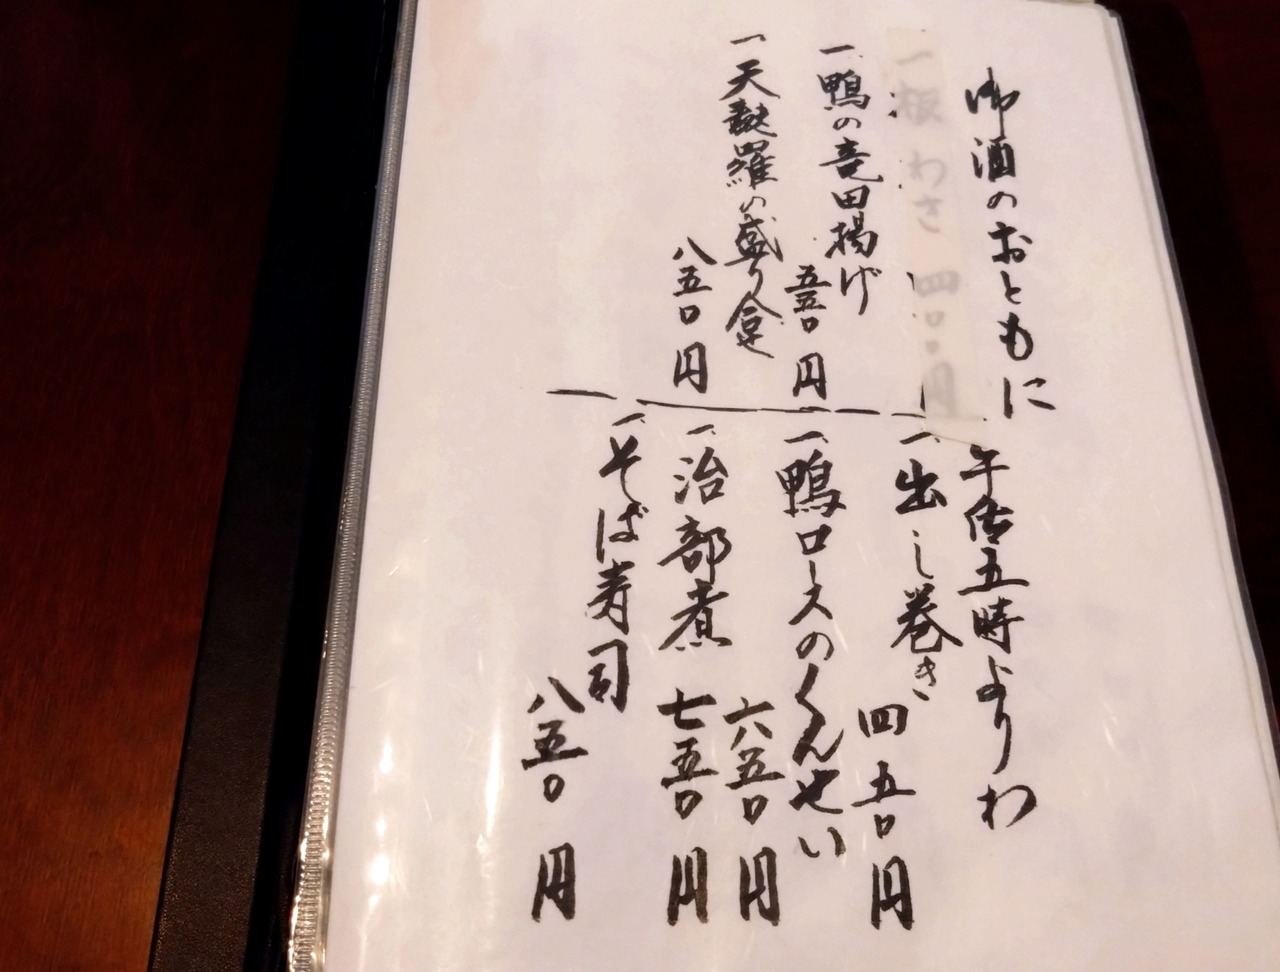 御酒のおともに
一板わさ 四〇〇円
一鴨の竜田揚げ
五五〇円
一天麩羅の盛り合せ
八五〇円
午后五時より
一出し巻き
四五〇円
一鴨ロースのくんせい
六五〇円
一治部煮 七五〇円
一そば寿司
八五〇円